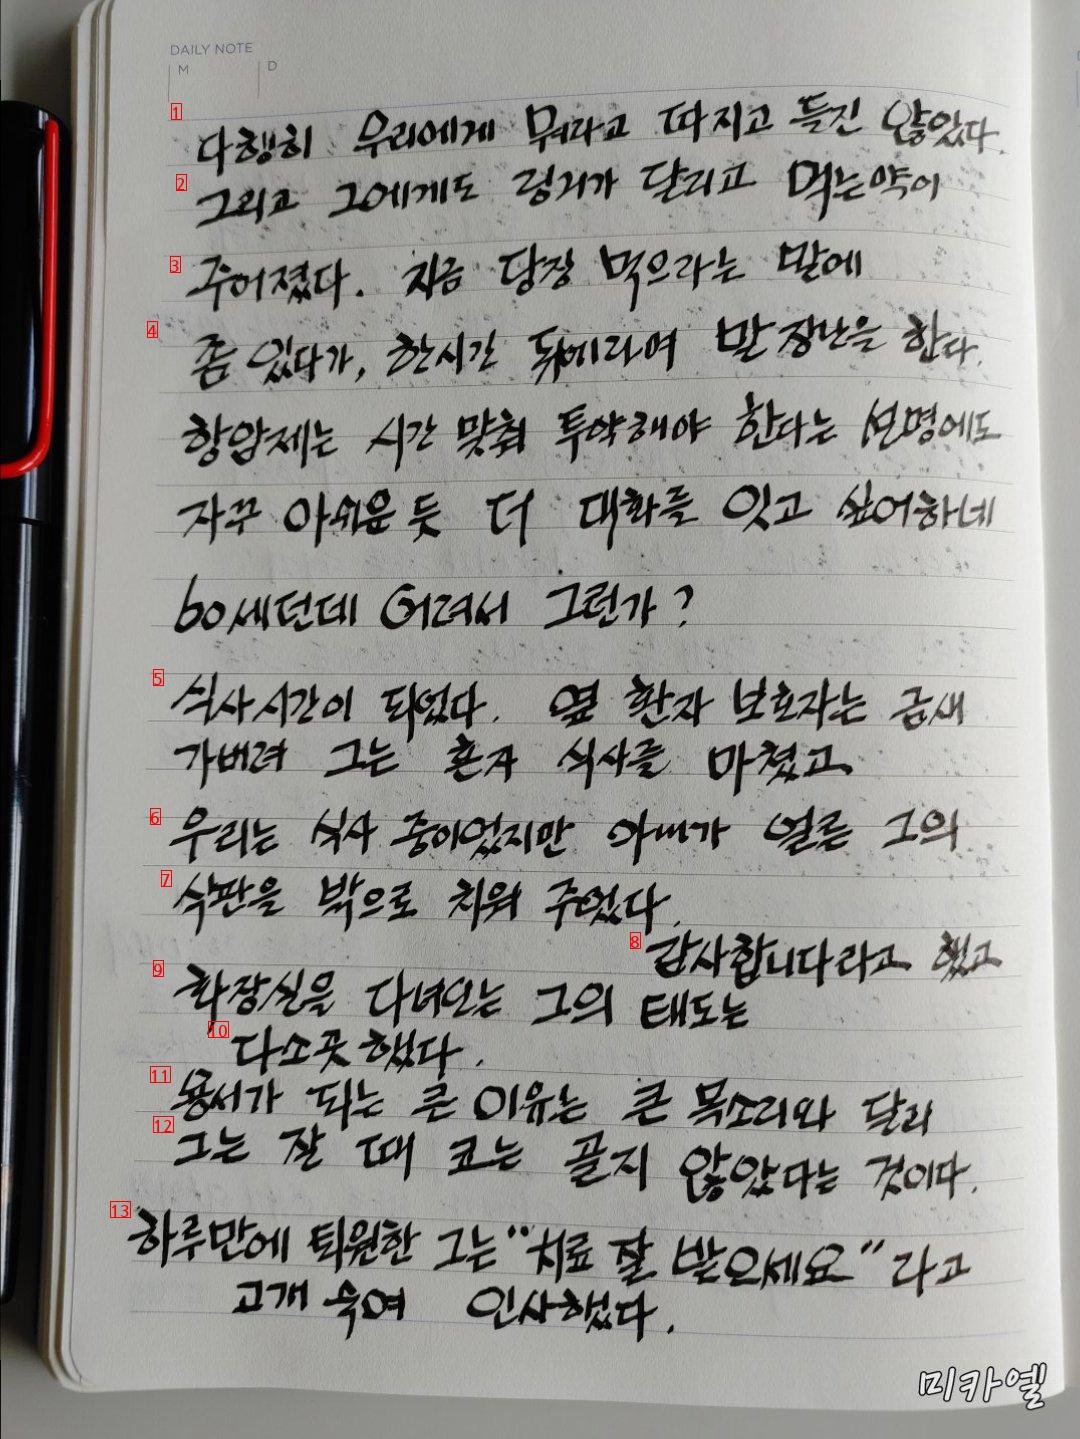 DAILY NOTE
M D
1 다행히 우리에게 뭐라고 따지고 들진 않았다.
2 그리고 그에게도 링거가 달리고 먹는약이
3 주어졌다. 지금 당장 먹으라는 말에
4 좀 있다가, 한시간 뒤에라며 말장난을 한다.
항암제는 시간 맞춰 투약해야 한다는 설명에도
자꾸 아쉬운 듯 더 대화를 잇고 싶어하네
60세던데 어려서 그런가?
5 식사시간이 되었다. 옆 환자 보호자는 금새
가버려 그는 혼자 식사를 마쳤고
6 우리는 식사 중이었지만 아빠가 얼른 그의
7 식판을 밖으로 치워 주었다.
8 감사합니다라고 했고
9 화장실을 다녀오는 그의 태도는
10 다소곳했다.
11 용서가 되는 큰 이유는 큰 목소리와 달리
12 그는 잘 때 코는 골지 않았다는 것이다.
13 하루만에 퇴원한 그는 "치료 잘 받으세요" 라고
고개 숙여 인사했다.
미카엘